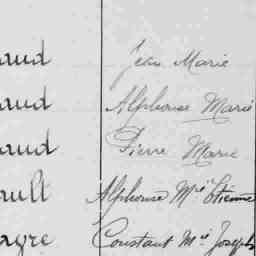 aud Jean Marie
aud Alphonse Marie
aud Pierre Marie
ault Alphonse M^ie Etienne
agre Constant M^ie Joseph